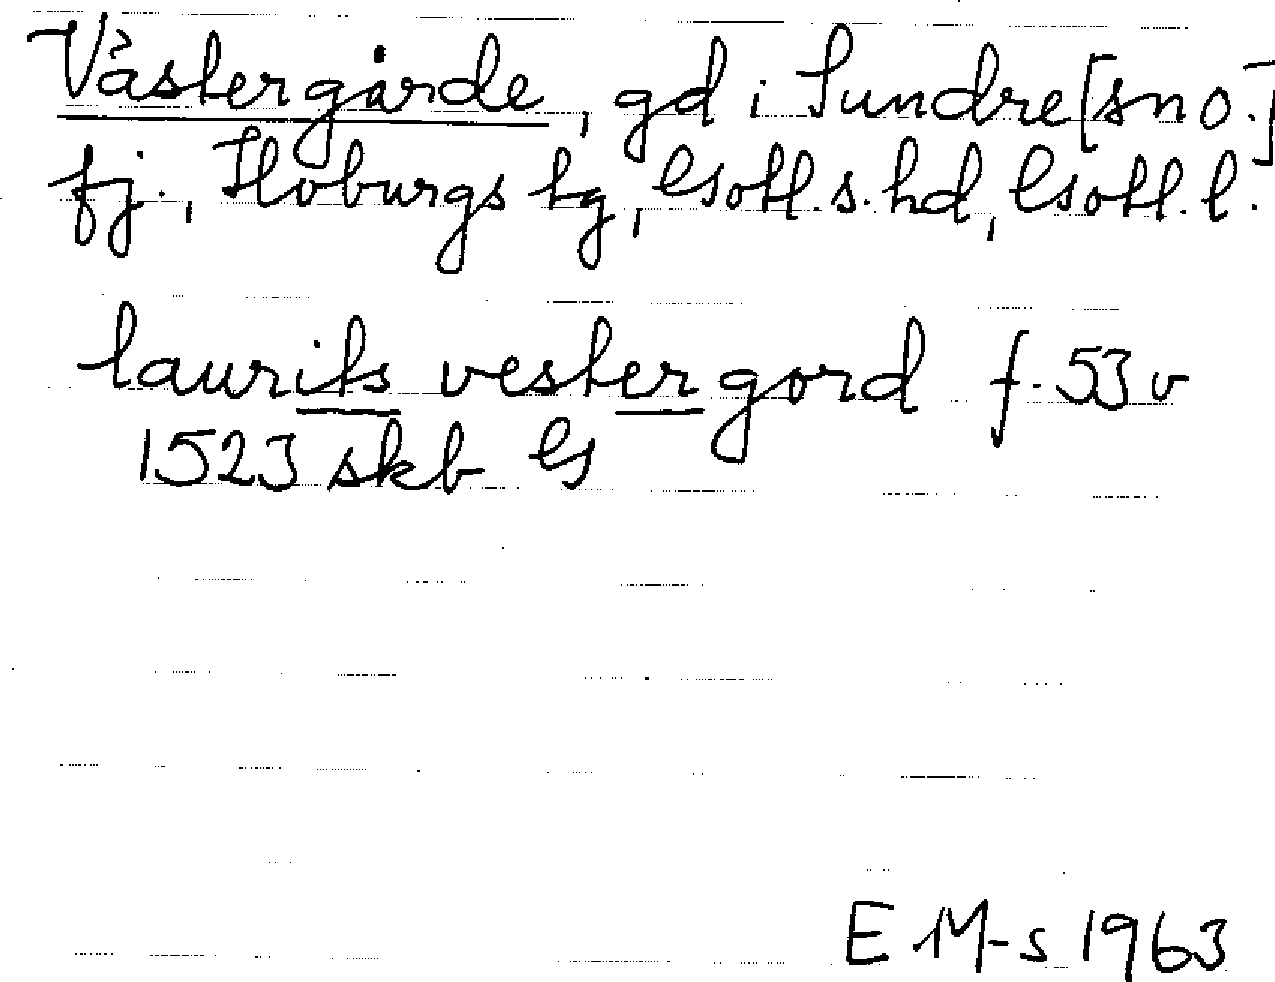 Västergårde, gd i Sundre [sn o.]
fj., Hoburgs tg, Gotl. s. hd, Gotl. l.
laurits vestergord f. 53 v
1523 skb G
E M-s 1963